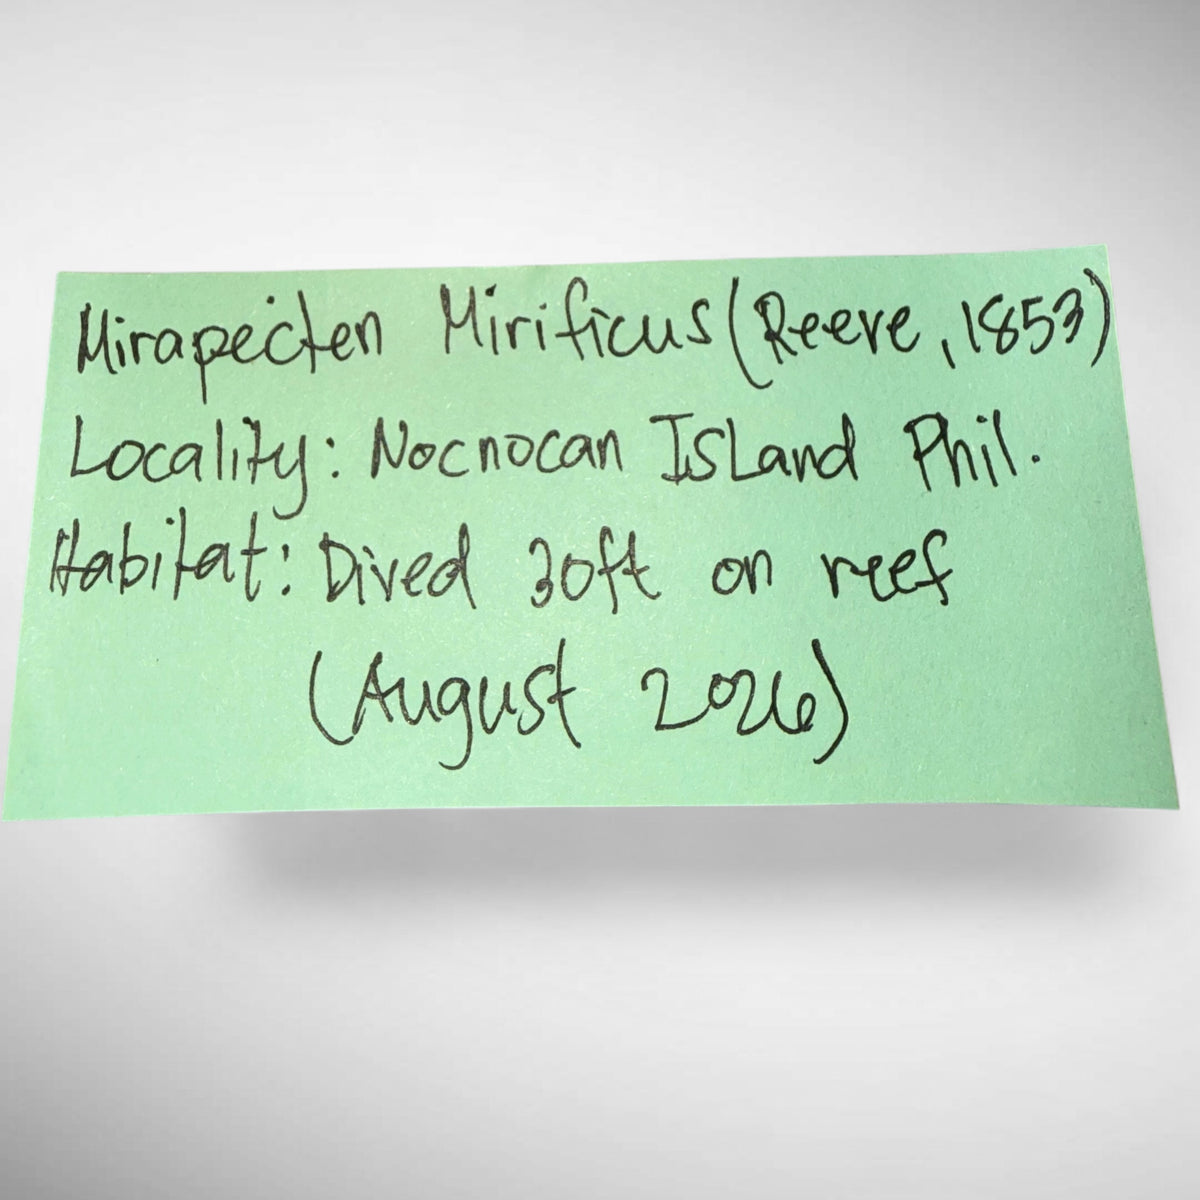 Mirapecten Mirificus (Reeve, 1853)
Locality: Nocnocan IsLand Phil.
Habitat: Dived 30ft on reef
(August 2026)